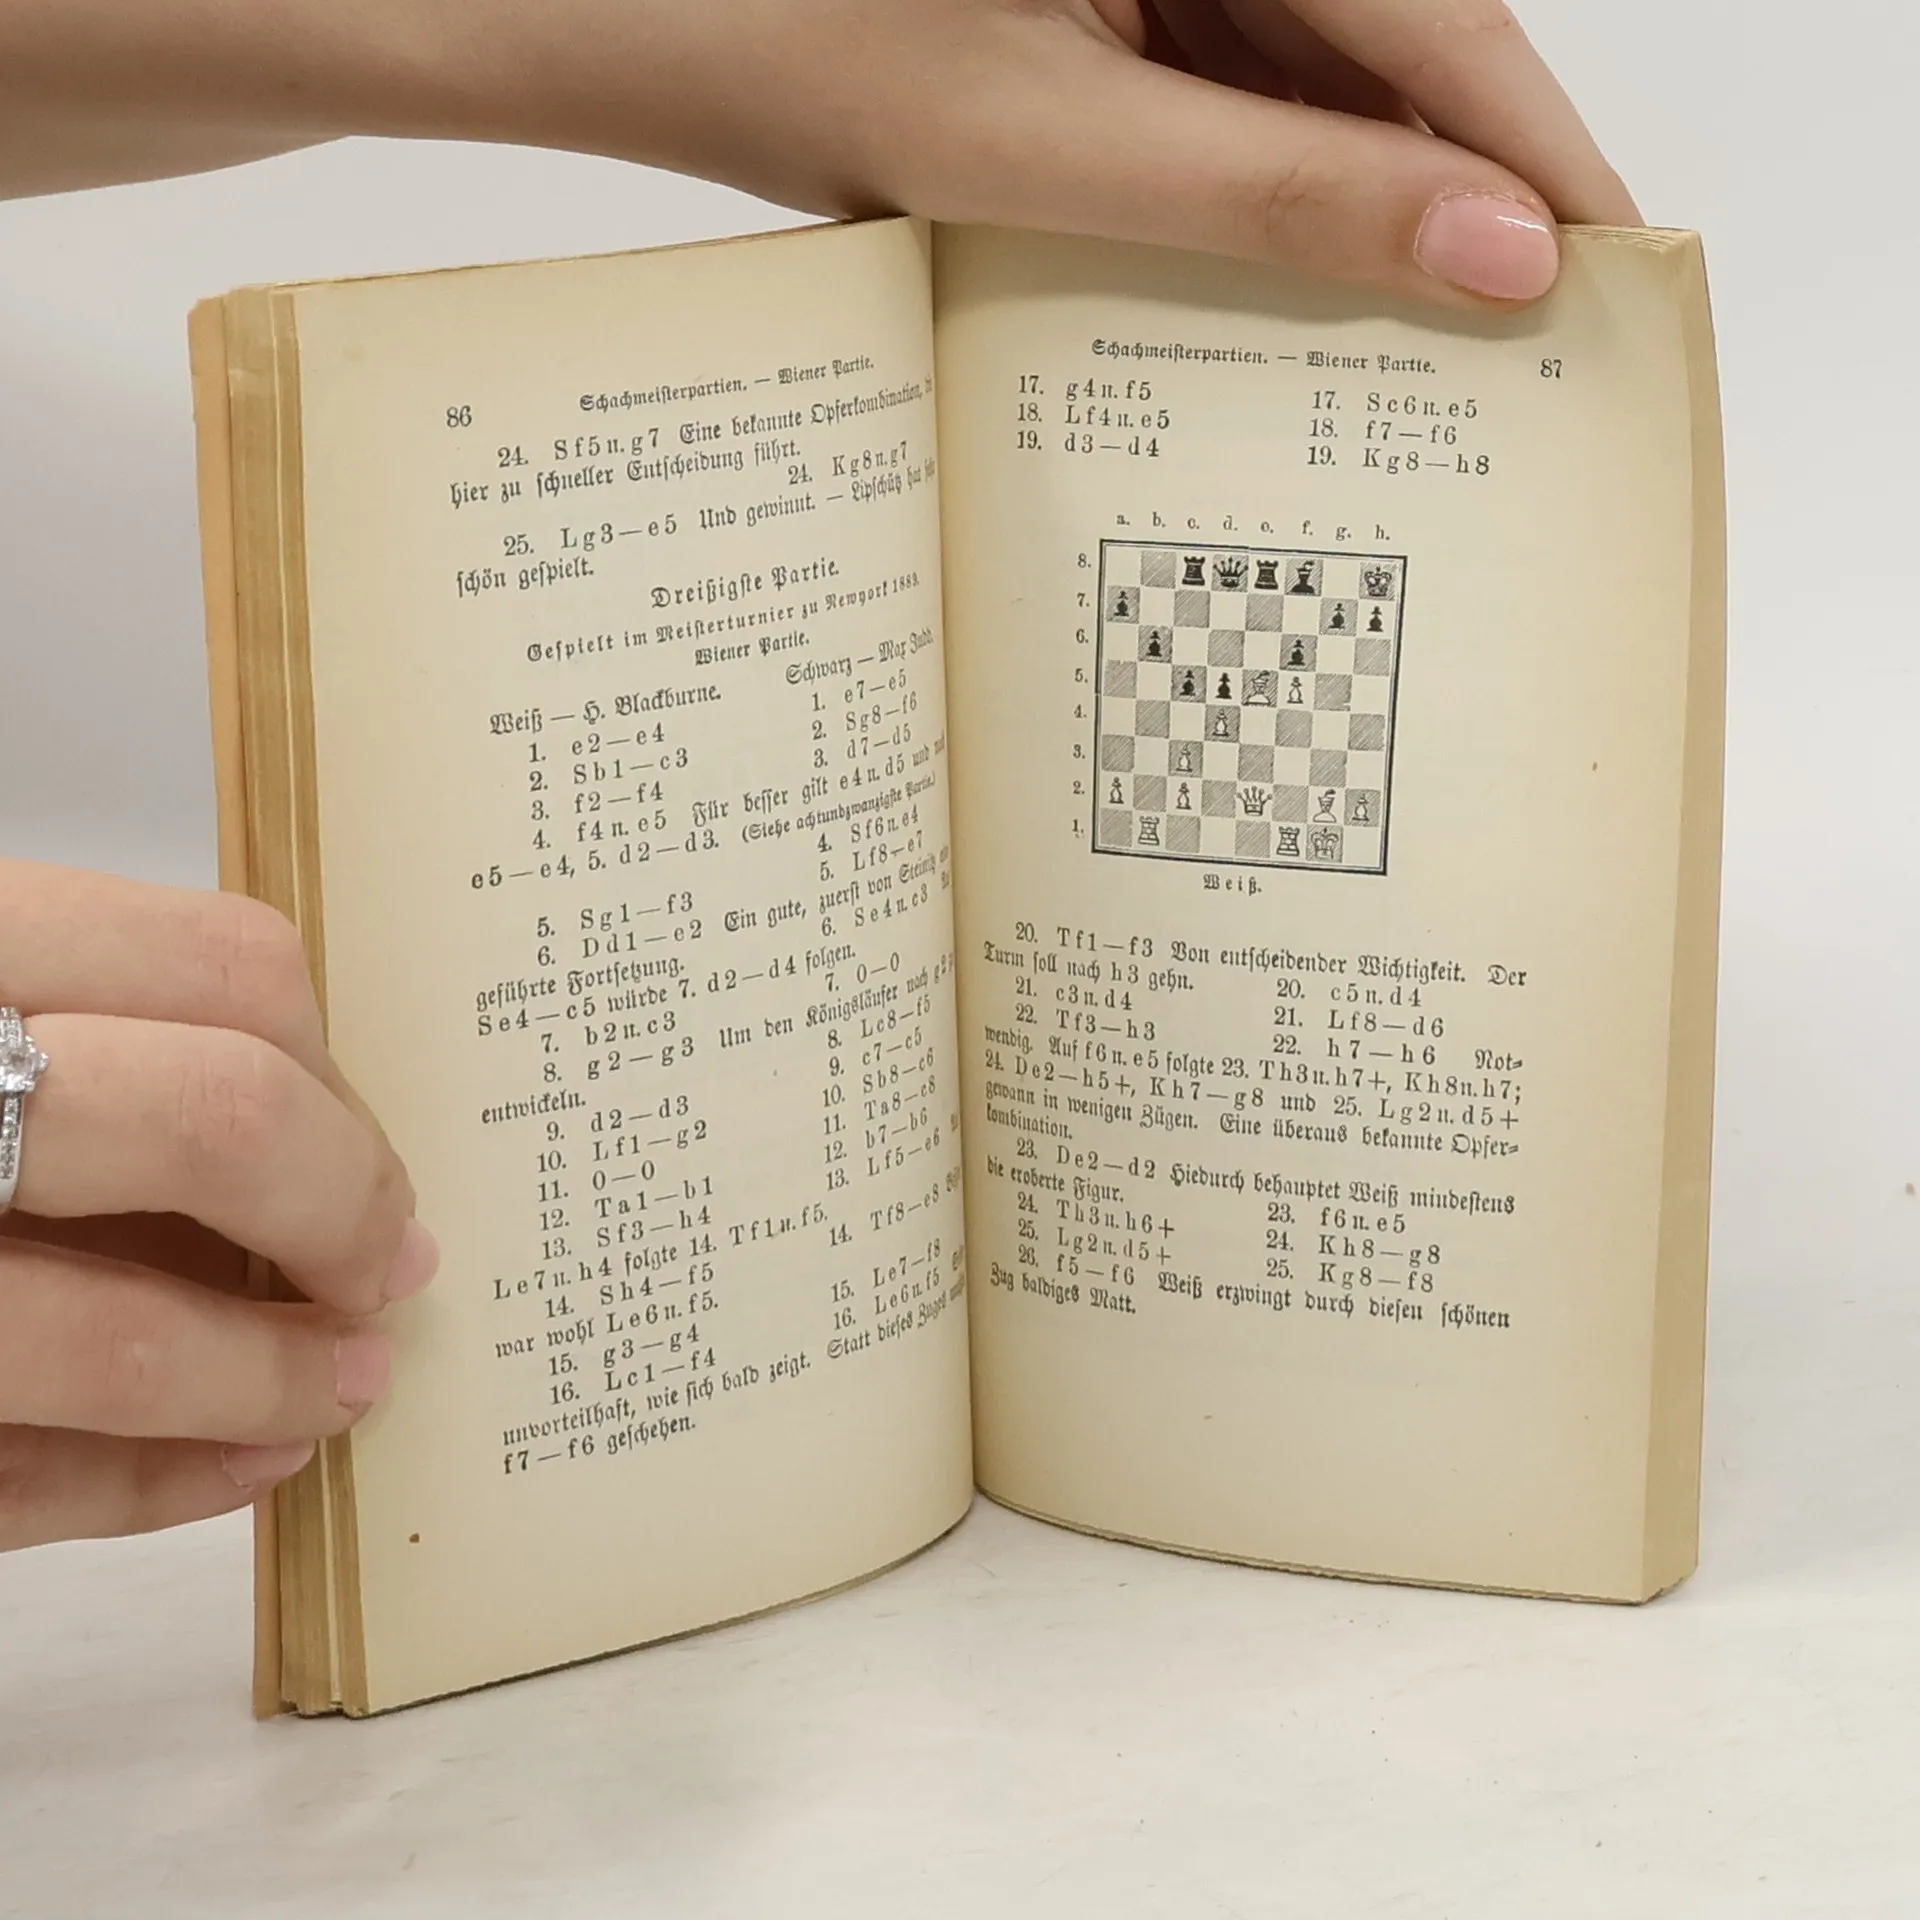 86
Schachmeisterpartien. — Wiener Partie.
24. Sf5n.g7 Eine bekannte Opferkombination,
hier zu schneller Entscheidung führt.
24. Kg8n.g7
25. Lg3—e5 Und gewinnt. — Lipschütz hat
schön gespielt.
Dreißigste Partie.
Gespielt im Meisterturnier zu Newyork 1889.
Wiener Partie.
Weiß — H. Blackburne. Schwarz — Max Judd.
1. e2—e4 1. e7—e5
2. Sb1—c3 2. Sg8—f6
3. f2—f4 3. d7—d5
4. f4n.e5 Für besser gilt e4n.d5 und
e5—e4, 5. d2—d3. (Siehe achtundzwanzigste Partie.)
4. Sf6n.e4
5. Sg1—f3 5. Lf8—e7
6. Dd1—e2 Ein gute, zuerst von Steinitz
geführte Fortsetzung. 6. Se4n.c3
Se4—c5 würde 7. d2—d4 folgen.
7. b2n.c3 7. 0—0
8. g2—g3 Um den Königsläufer nach g2
entwickeln. 8. Lc8—f5
9. d2—d3 9. c7—c5
10. Lf1—g2 10. Sb8—c6
11. 0—0 11. Ta8—c8
12. Ta1—b1 12. b7—b6
13. Sf3—h4 13. Lf5—e6
Le7n.h4 folgte 14. Tf1n.f5.
14. Sh4—f5 14. Tf8—e8
war wohl Le6n.f5.
15. g3—g4 15. Le7—f8
16. Lc1—f4 16. Le6n.f5
unvorteilhaft, wie sich bald zeigt. Statt dieses Zuges
f7—f6 geschehen.
Schachmeisterpartien. — Wiener Partie. 87
17. g4n.f5 17. Sc6n.e5
18. Lf4n.e5 18. f7—f6
19. d3—d4 19. Kg8—h8
a. b. c. d. e. f. g. h.
8.
7.
6.
5.
4.
3.
2.
1.
Weiß.
20. Tf1—f3 Von entscheidender Wichtigkeit. Der
Turm soll nach h3 gehn. 20. c5n.d4
21. c3n.d4 21. Lf8—d6
22. Tf3—h3 22. h7—h6 Not=
wendig. Auf f6n.e5 folgte 23. Th3n.h7+, Kh8n.h7;
24. De2—h5+, Kh7—g8 und 25. Lg2n.d5+
gewann in wenigen Zügen. Eine überaus bekannte Opfer=
kombination.
23. De2—d2 Hiedurch behauptet Weiß mindestens
die eroberte Figur. 23. f6n.e5
24. Th3n.h6+ 24. Kh8—g8
25. Lg2n.d5+ 25. Kg8—f8
26. f5—f6 Weiß erzwingt durch diesen schönen
Zug baldiges Matt.